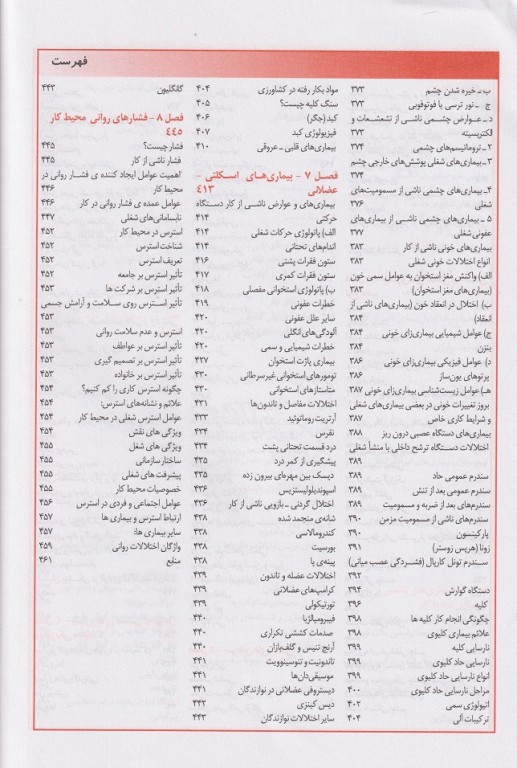 فهرست
ب - خیره شدن چشم ۳۷۳
ج - نور ترسی یا فوتوفوبی ۳۷۳
د - عوارض چشمی ناشی از تشعشعات و
الکتریسیته ۳۷۳
۲ - تروماتیسم‌های چشمی ۳۷۴
۳ - بیماری‌های شغلی پوشش‌های خارجی چشم
۳۷۴
۴ - بیماری‌های چشمی ناشی از مسمومیت‌های
شغلی ۳۷۶
۵ - بیماری‌های چشمی ناشی از بیماری‌های
عفونی شغلی ۳۷۷
بیماری‌های خونی ناشی از کار ۳۸۳
انواع اختلالات خونی شغلی ۳۸۳
الف) واکنش مغز استخوان به عوامل سمی خون
(بیماری‌های مغز استخوان) ۳۸۳
ب) اختلال در انعقاد خون (بیماری‌های ناشی از
انعقاد) ۳۸۴
ج) عوامل شیمیایی بیماری‌زای خونی ۳۸۴
بنزن ۳۸۴
د) عوامل فیزیکی بیماری‌زای خونی ۳۸۶
پرتوهای یون‌ساز ۳۸۶
هـ) عوامل زیست‌شناسی بیماری‌زای خونی ۳۸۷
بروز تغییرات خونی در بعضی بیماری‌های شغلی
و شرایط کاری خاص ۳۸۷
بیماری‌های دستگاه عصبی درون ریز ۳۸۸
اختلالات دستگاه ترشح داخلی با منشأ شغلی
۳۸۹
سندرم عمومی حاد ۳۸۹
سندرم عمومی بعد از تنش ۳۸۹
سندرم‌های بعد از ضربه و مسمومیت ۳۸۹
سندرم‌های ناشی از مسمومیت مزمن ۳۹۰
پارکینسون ۳۹۰
زونا (هرپس زوستر) ۳۹۱
سندرم تونل کارپال (فشردگی عصب میانی)
۳۹۲
دستگاه گوارش ۳۹۴
کلیه ۳۹۶
چگونگی انجام کار کلیه ها ۳۹۸
علائم بیماری کلیوی ۳۹۸
نارسایی کلیه ۳۹۹
نارسایی حاد کلیوی ۳۹۹
انواع نارسایی حاد کلیوی ۳۹۹
مراحل نارسایی حاد کلیوی ۴۰۰
اتیولوژی سمی ۴۰۲
ترکیبات آلی ۴۰۴
مواد بکار رفته در کشاورزی ۴۰۴
سنگ کلیه چیست؟ ۴۰۵
کبد (جگر) ۴۰۶
فیزیولوژی کبد ۴۰۷
بیماری‌های قلبی - عروقی ۴۱۰
فصل ۷ - بیماری‌های اسکلتی -
عضلانی ۴۱۳
بیماری‌های و عوارض ناشی از کار دستگاه
حرکتی ۴۱۴
الف) پاتولوژی حرکات شغلی ۴۱۴
اندام‌های تحتانی ۴۱۴
ستون فقرات پشتی ۴۱۶
ستون فقرات کمری ۴۱۷
ب) پاتولوژی استخوانی مفصلی ۴۱۸
خطرات عفونی ۴۱۹
سایر علل عفونی ۴۲۰
آلودگی‌های انگلی ۴۲۰
خطرات شیمیایی و سمی ۴۲۰
بیماری پاژت استخوان ۴۲۷
تومورهای استخوانی غیرسرطانی ۴۳۰
متاستازهای استخوانی ۴۳۰
اختلالات مفاصل و تاندون‌ها ۴۳۱
آرتریت روماتوئید ۴۳۳
نقرس ۴۳۴
درد قسمت تحتانی پشت ۴۳۴
پیشگیری از کمر درد ۴۳۵
دیسک بین مهره‌ای بیرون زده ۴۳۵
اسپوندیلولیستزیس ۴۳۶
اختلال گردنی - بازویی ناشی از کار ۴۳۶
شانه‌ی منجمد شده ۴۳۸
کندرومالاسی ۴۳۸
بورسیت ۴۳۸
پینه‌ی پا ۴۳۸
اختلالات عضله و تاندون ۴۳۹
کرامپ‌های عضلانی ۴۳۹
تورتیکولی ۴۳۹
فیبرومیالژیا ۴۴۰
صدمات کششی تکراری ۴۴۰
آرنج تنیس و گلف‌بازان ۴۴۰
تاندونیت و تنوسینوویت ۴۴۱
موسیقی‌دان‌ها ۴۴۱
دیستروفی عضلانی در نوازندگان ۴۴۱
دیس کینزی ۴۴۲
سایر اختلالات نوازندگان ۴۴۳
گانگلیون ۴۴۳
فصل ۸ - فشارهای روانی محیط کار
۴۴۵
فشار چیست؟ ۴۴۵
فشار ناشی از کار ۴۴۵
اهمیت عوامل ایجاد کننده ی فشار روانی در
محیط کار ۴۴۶
عوامل عمده ی فشار روانی در کار ۴۴۶
نابسامانی‌های شغلی ۴۴۷
استرس در محیط کار ۴۵۲
شناخت استرس ۴۵۲
تعریف استرس ۴۵۲
تأثیر استرس بر جامعه ۴۵۲
تأثیر استرس بر شرکت ها ۴۵۳
تأثیر استرس روی سلامت و آرامش جسمی
۴۵۳
استرس و عدم سلامت روانی ۴۵۳
تأثیر استرس بر عواطف ۴۵۳
تأثیر استرس بر تصمیم گیری ۴۵۳
تأثیر استرس بر خانواده ۴۵۳
چگونه استرس کاری را کم کنیم؟ ۴۵۴
علائم و نشانه‌های استرس: ۴۵۴
عوامل استرس شغلی در محیط کار ۴۵۴
ویژگی های نقش ۴۵۴
ویژگی های شغل ۴۵۵
ساختار سازمانی ۴۵۵
پیشرفت های شغلی ۴۵۵
خصوصیات محیط کار ۴۵۵
عوامل اجتماعی و فردی در استرس ۴۵۶
ارتباط استرس و بیماری ها ۴۵۷
سایر بیماری ها: ۴۵۷
واژگان اختلالات روانی ۴۵۹
منابع ۴۶۱